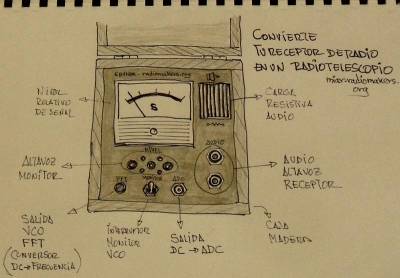 CONVIERTE
TU RECEPTOR DE RADIO
EN UN RADIOTELESCOPIO
radiomakers.
org
radiomakers.org
S
NIVEL
RELATIVO
DE SEÑAL
CARGA
RESISTIVA
AUDIO
NIVEL
AUDIO
ALTAVOZ
MONITOR
FFT
MONITOR
ADC
AUDIO
ALTAVOZ
RECEPTOR
SALIDA
VCO
FFT
(CONVERSOR
DC→FRECUENCIA)
INTERRUPTOR
MONITOR
VCO
SALIDA
DC → ADC
CAJA
MADERA